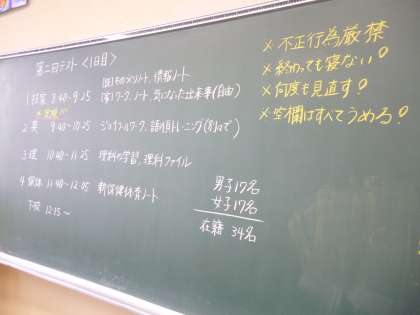 第二回テスト〈1日目〉
(技)ものづくりノート、情報ノート
1 技家 8:40~9:25 (家)ワーク、ノート、気になった出来事(自由)
2 英 9:40~10:25
3 理 10:40~11:25 理科の学習、理科ファイル
4 保体 11:40~12:25 新保健体育ノート
下校 12:15~
男子17名
女子17名
在籍 34名
※不正行為厳禁
※終わっても寝ない!
※何度も見直す!
※空欄はすべてうめる!